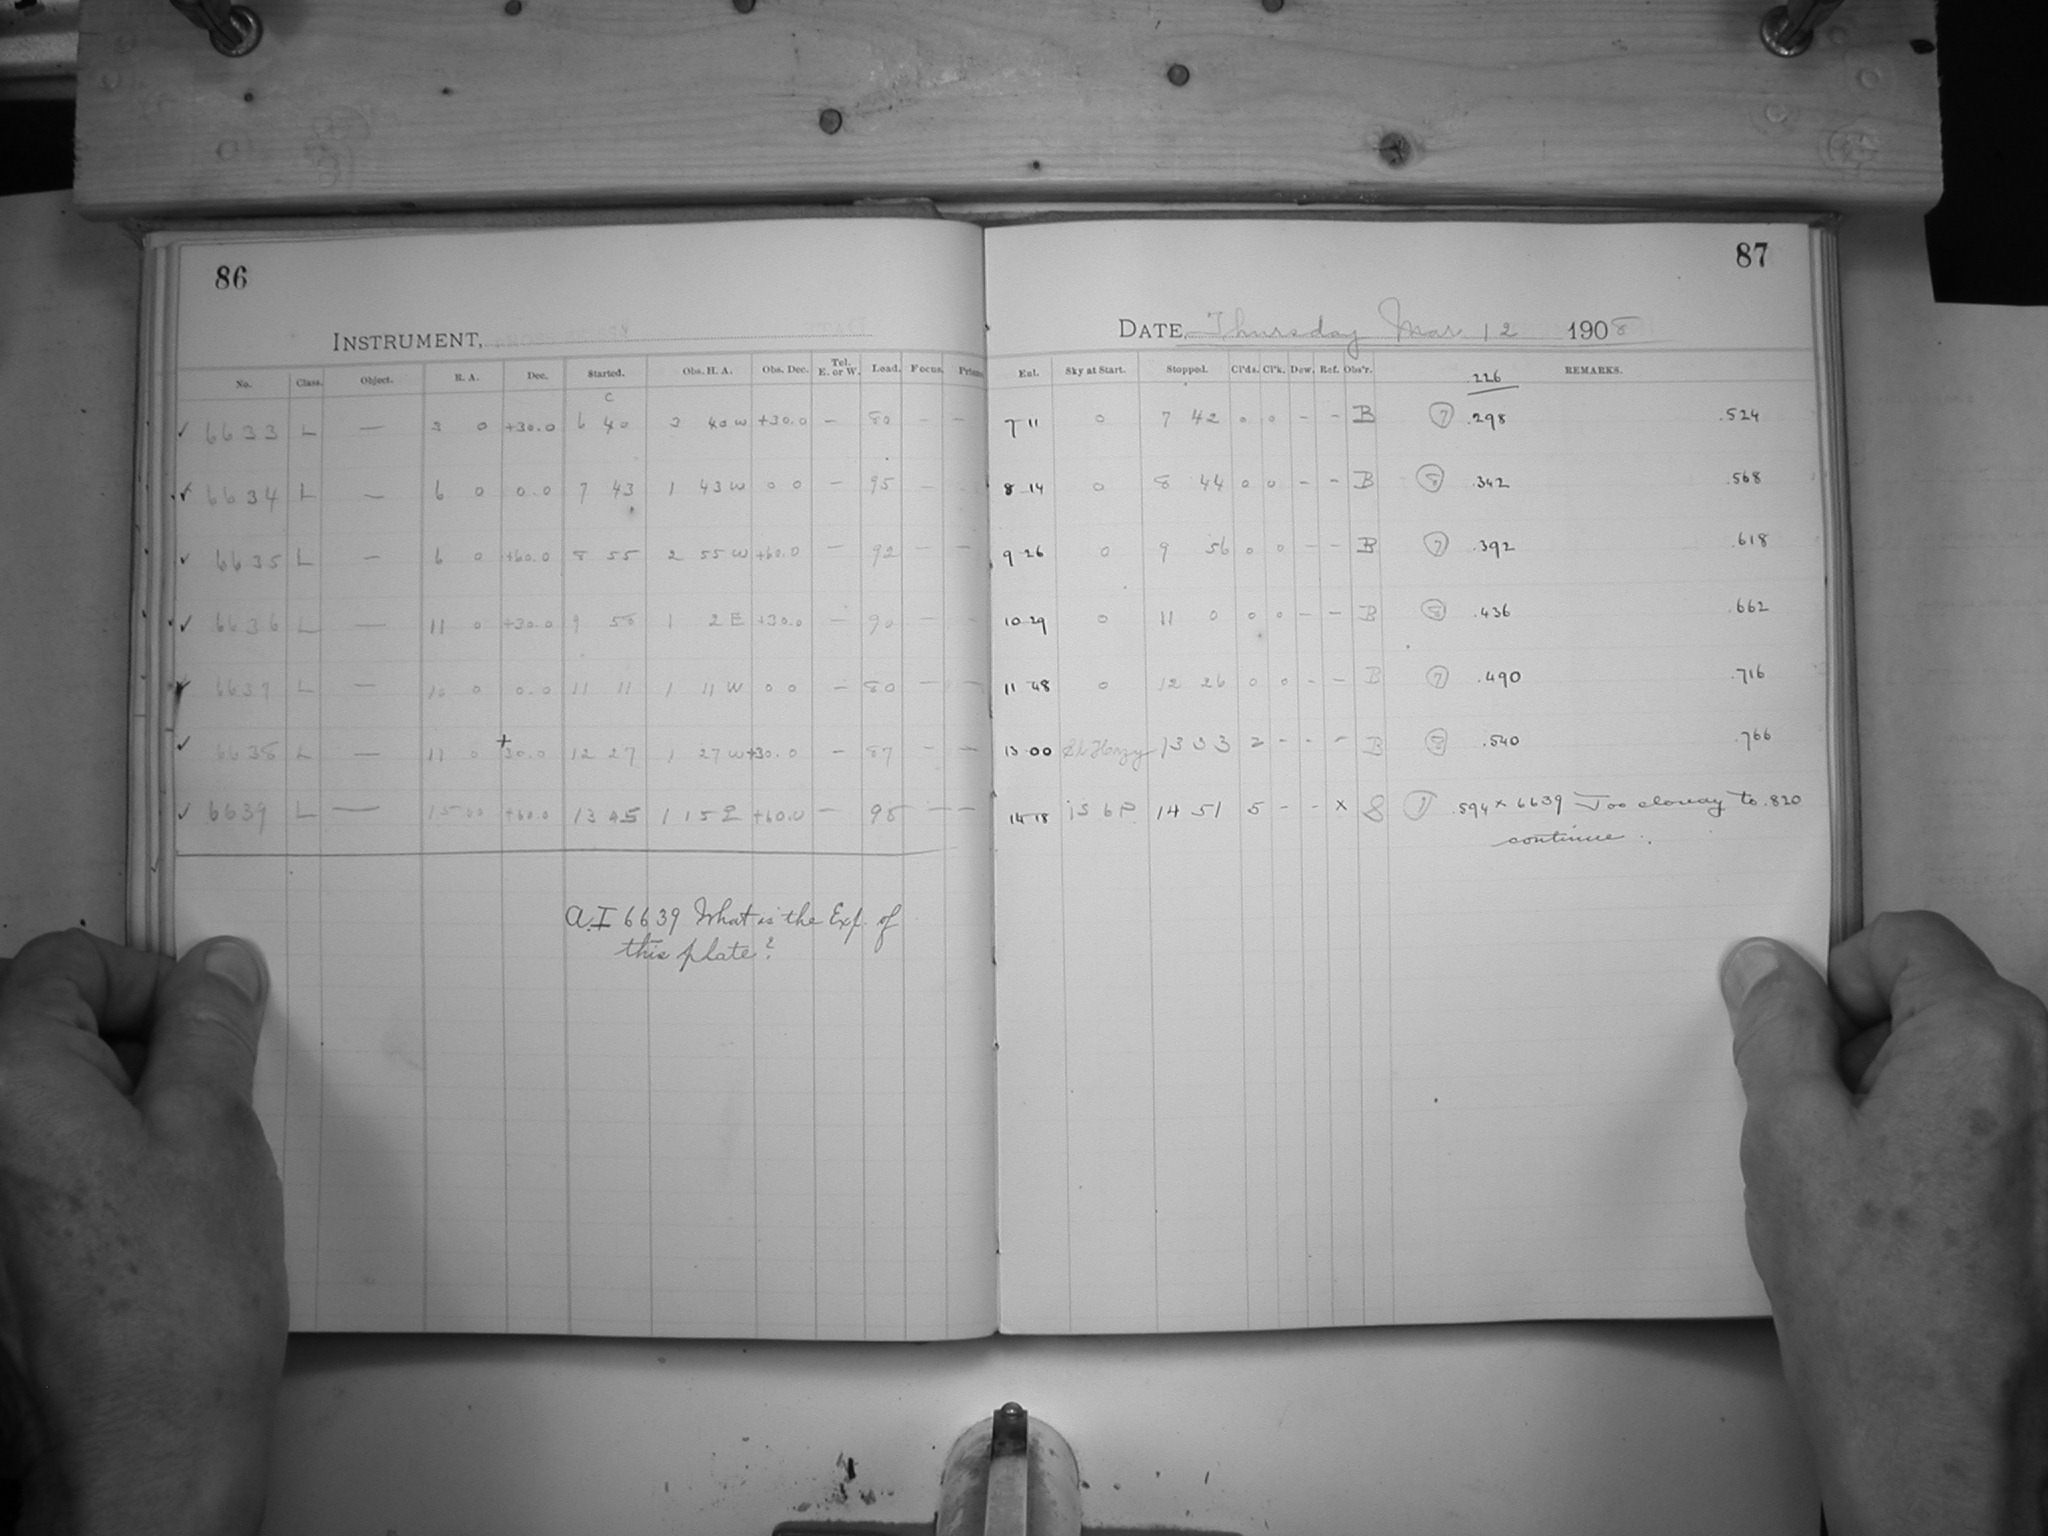 86
87
INSTRUMENT,
DATE, Thursday Mar. 12 1908
No. Class. Object. R. A. Dec. Started. Obs. H. A. Obs. Dec. Tel. E. or W. Load. Focus. Prisms Eul. Sky at Start. Stopped. Cl'ds. Cl'k. Dew. Ref. Obs'r. REMARKS.
c .226
✓ 6633 L — 3 0 +30.0 6 40 3 40 W +30.0 — 80 — — 7 11 0 7 42 0 0 - - B (7) .298 .524
✓ 6634 L — 6 0 0.0 7 43 1 43 W 0 0 — 95 — — 8 14 0 8 44 0 0 - - B (8) .342 .568
✓ 6635 L — 6 0 +60.0 8 55 2 55 W +60.0 — 92 — — 9 26 0 9 56 0 0 - - B (7) .392 .618
✓ 6636 L — 11 0 +30.0 9 58 1 2 E +30.0 — 90 — — 10 29 0 11 0 0 0 - - B (8) .436 .662
✓ 6637 L — 10 0 0.0 11 11 1 11 W 0 0 — 80 — — 11 48 0 12 26 0 0 - - B (7) .490 .716
✓ 6638 L — 11 0 +30.0 12 27 1 27 W +30.0 — 87 — — 13 00 Sl. Hazy 13 33 2 - - - B (8) .540 .766
✓ 6639 L — 15 00 +60.0 13 45 1 15 E +60.0 — 98 — — 14 18 is 6 P. 14 51 5 - - x S .594 x 6639 Too cloudy to .820
continue.
A.I 6639 What is the Exp. of
this plate?